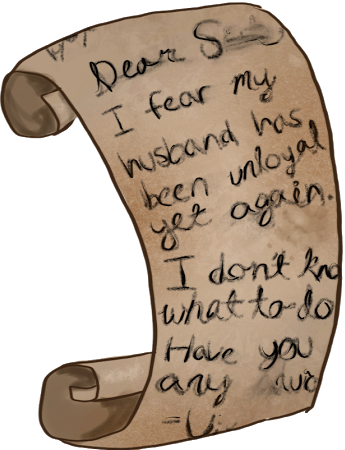 Dear
I fear my
husband has
been unloyal
yet again.
I don't kno
what to do
Have you
any